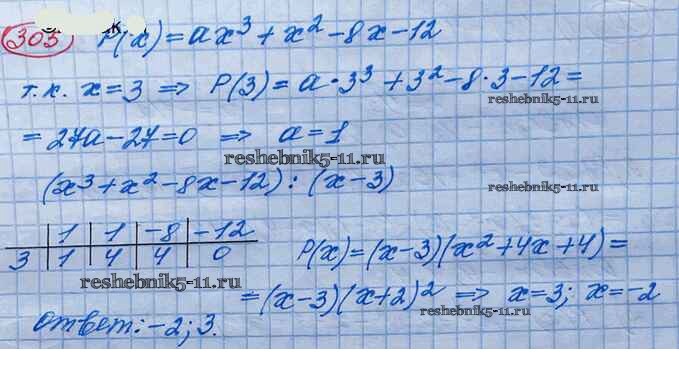 305 P(x) = ax³ + x² - 8x - 12
т.к. x = 3 ⇒ P(3) = a · 3³ + 3² - 8 · 3 - 12 =
reshebnik5-11.ru
= 27a - 27 = 0 ⇒ a = 1
reshebnik5-11.ru
(x³ + x² - 8x - 12) : (x - 3)
reshebnik5-11.ru
1 | 1 | -8 | -12
3 | 1 | 4 | 4 | 0
P(x) = (x - 3)(x² + 4x + 4) =
reshebnik5-11.ru
= (x - 3)(x + 2)² ⇒ x = 3; x = -2
reshebnik5-11.ru
ответ: -2; 3.